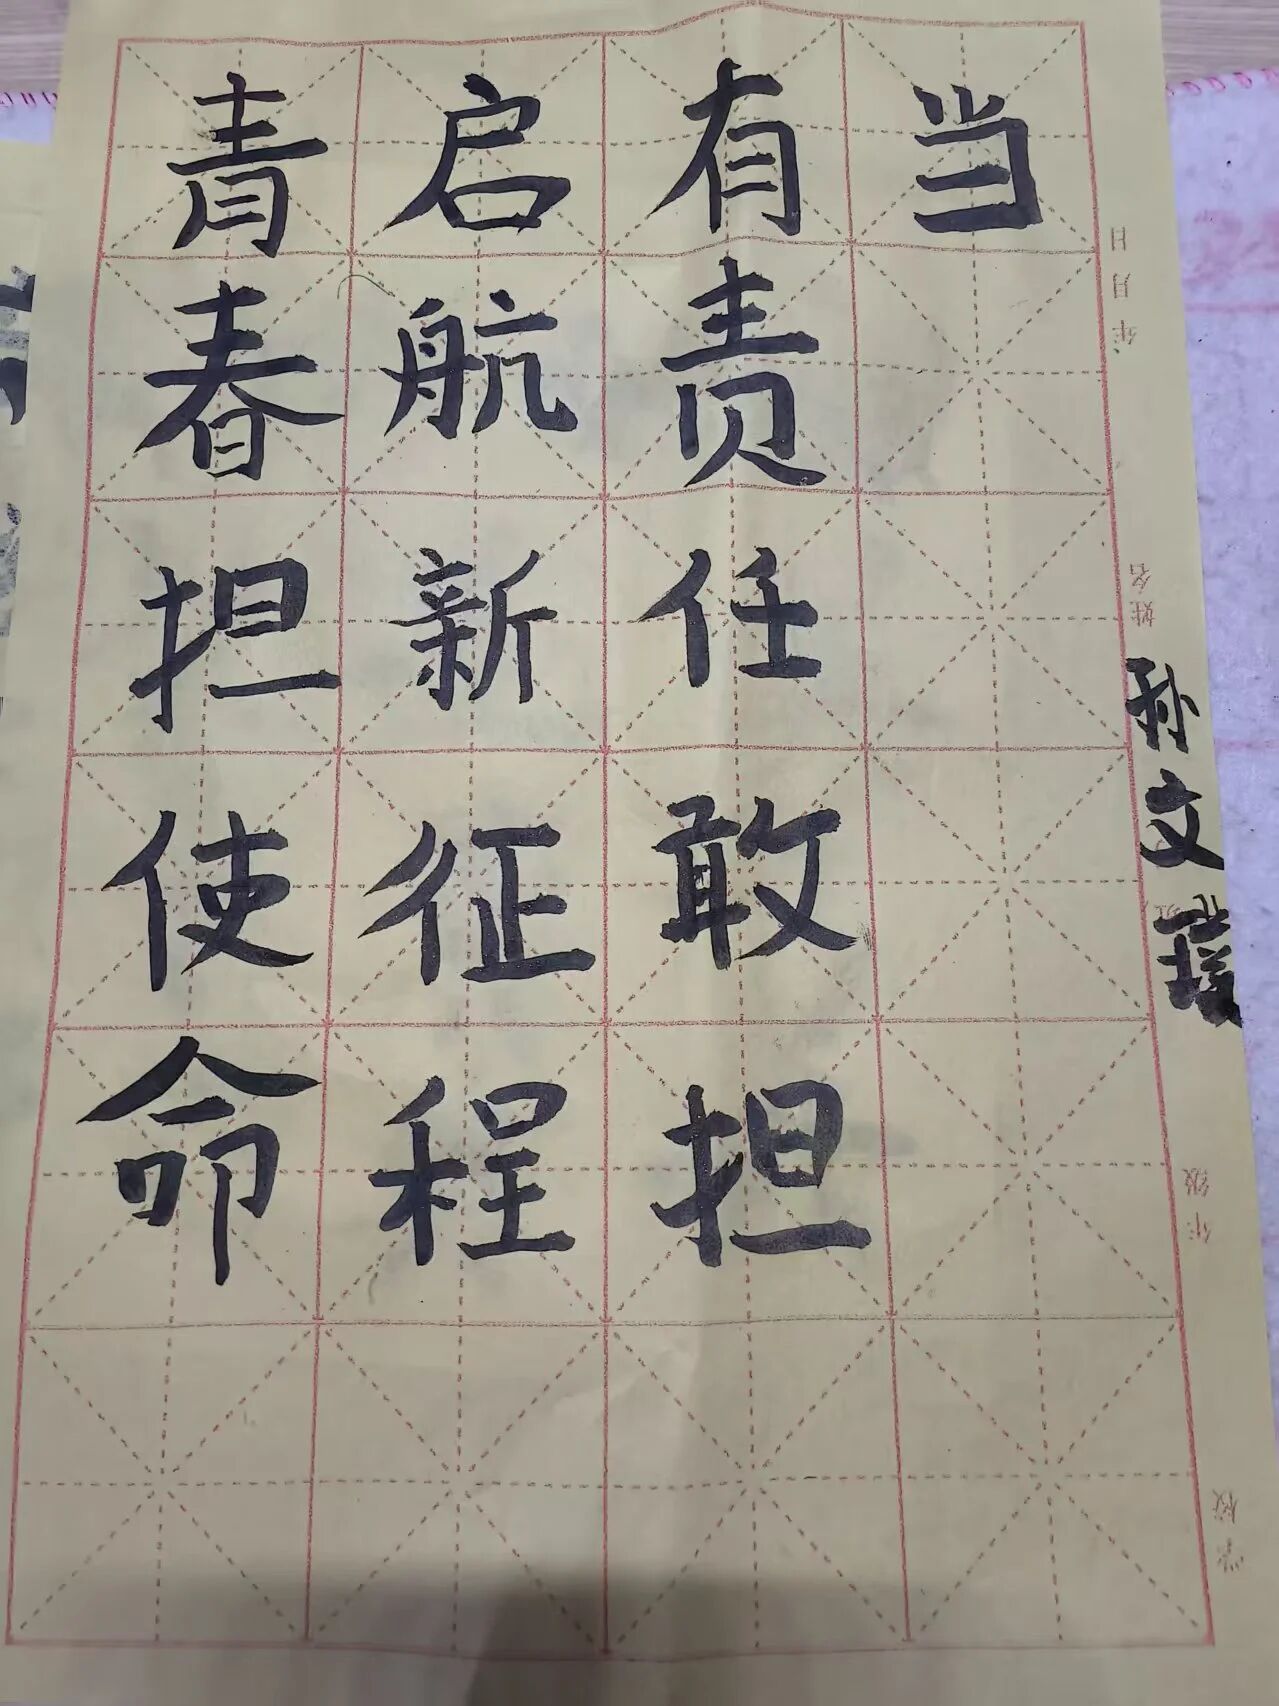 青春担使命
启航新征程
有责任敢担
当
孙文
学校 年级 班 姓名 年 月 日